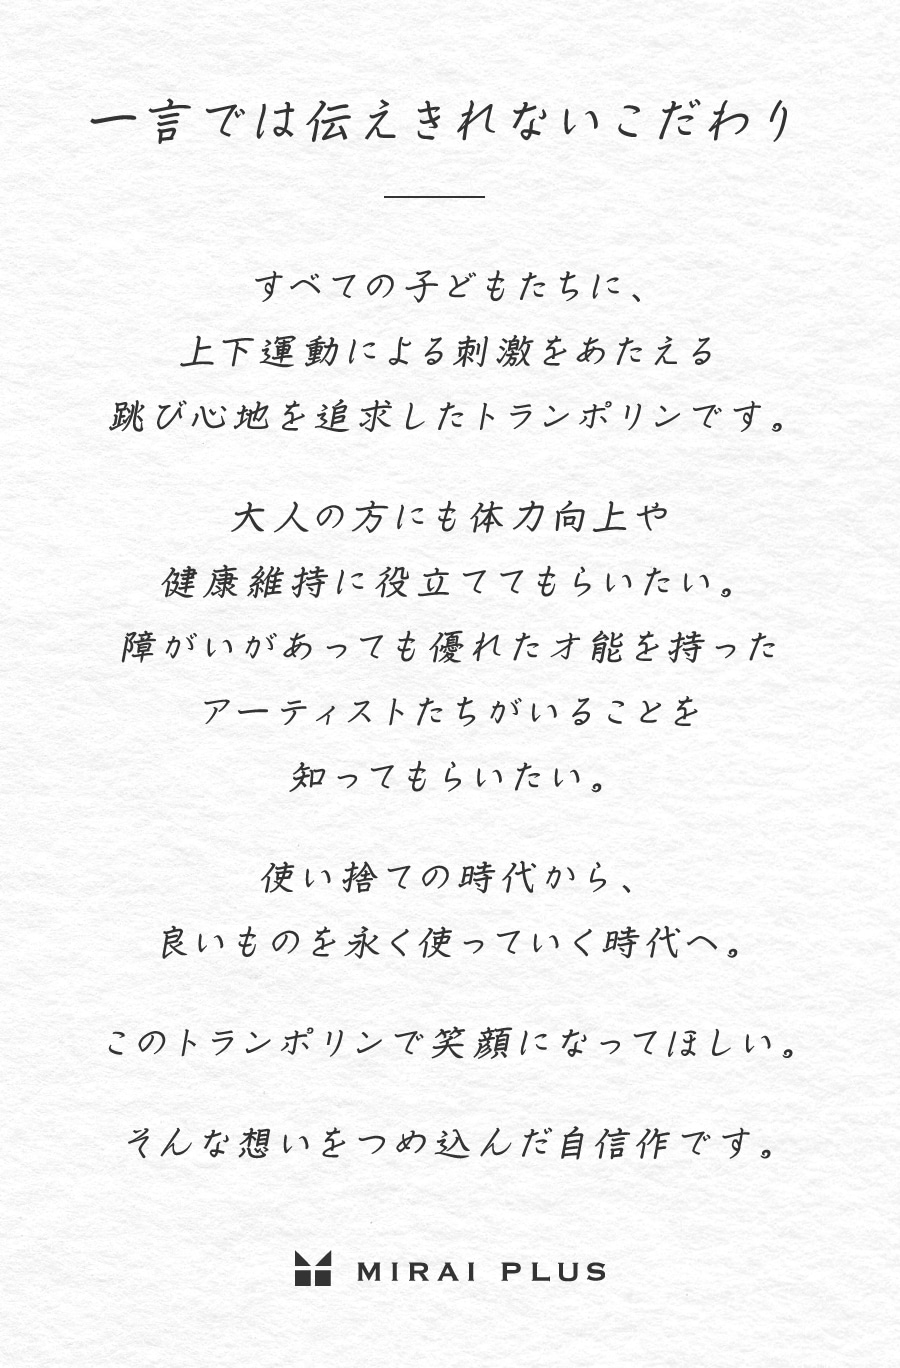 一言では伝えきれないこだわり
すべての子どもたちに、
上下運動による刺激をあたえる
跳び心地を追求したトランポリンです。
大人の方にも体力向上や
健康維持に役立ててもらいたい。
障がいがあっても優れた才能を持った
アーティストたちがいることを
知ってもらいたい。
使い捨ての時代から、
良いものを永く使っていく時代へ。
このトランポリンで笑顔になってほしい。
そんな想いをつめ込んだ自信作です。
MIRAI PLUS